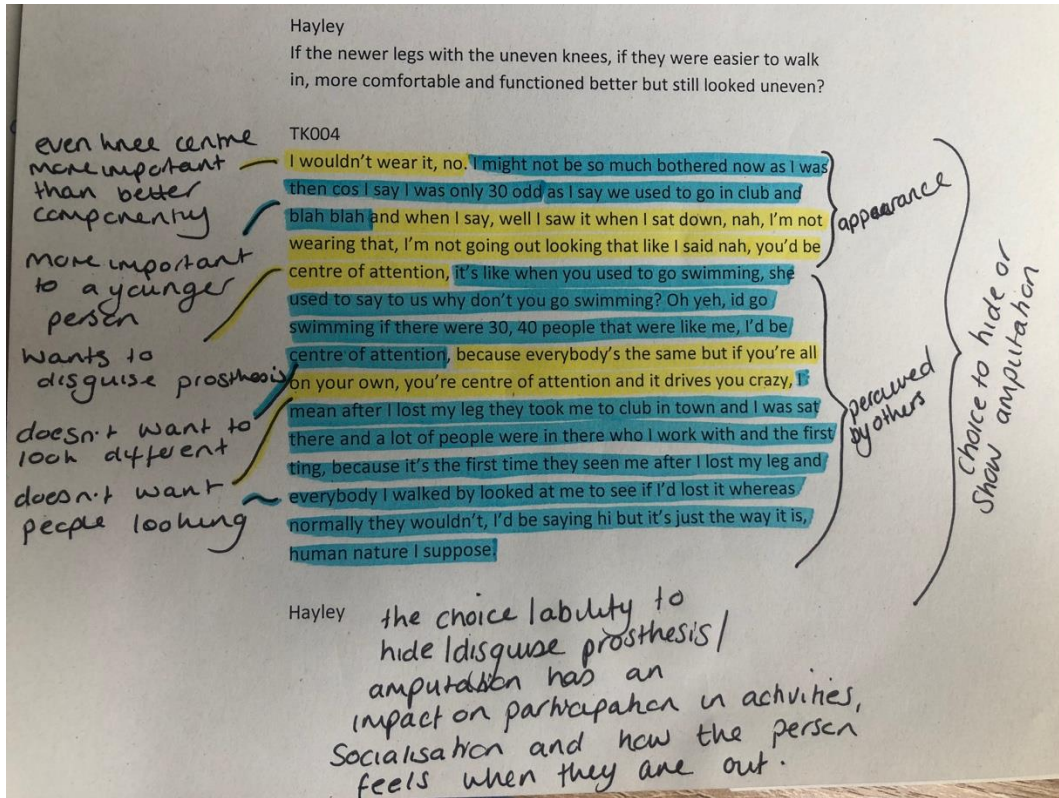 Hayley
If the newer legs with the uneven knees, if they were easier to walk
in, more comfortable and functioned better but still looked uneven?
TK004
I wouldn't wear it, no. I might not be so much bothered now as I was
then cos I say I was only 30 odd as I say we used to go in club and
blah blah and when I say, well I saw it when I sat down, nah, I'm not
wearing that, I'm not going out looking that like I said nah, you'd be
centre of attention, it's like when you used to go swimming, she
used to say to us why don't you go swimming? Oh yeh, id go
swimming if there were 30, 40 people that were like me, I'd be
centre of attention, because everybody's the same but if you're all
on your own, you're centre of attention and it drives you crazy, I
mean after I lost my leg they took me to club in town and I was sat
there and a lot of people were in there who I work with and the first
ting, because it's the first time they seen me after I lost my leg and
everybody I walked by looked at me to see if I'd lost it whereas
normally they wouldn't, I'd be saying hi but it's just the way it is,
human nature I suppose.
even knee centre
more important
than better
componentry
more important
to a younger
person
wants to
disguise prosthesis
doesn't want to
look different
doesn't want
people looking
appearance
perceived
by others
Choice to hide or
Show amputation
Hayley
the choice/ability to
hide/disguise prosthesis/
amputation has an
impact on participation in activities,
Socialisation and how the person
feels when they are out.